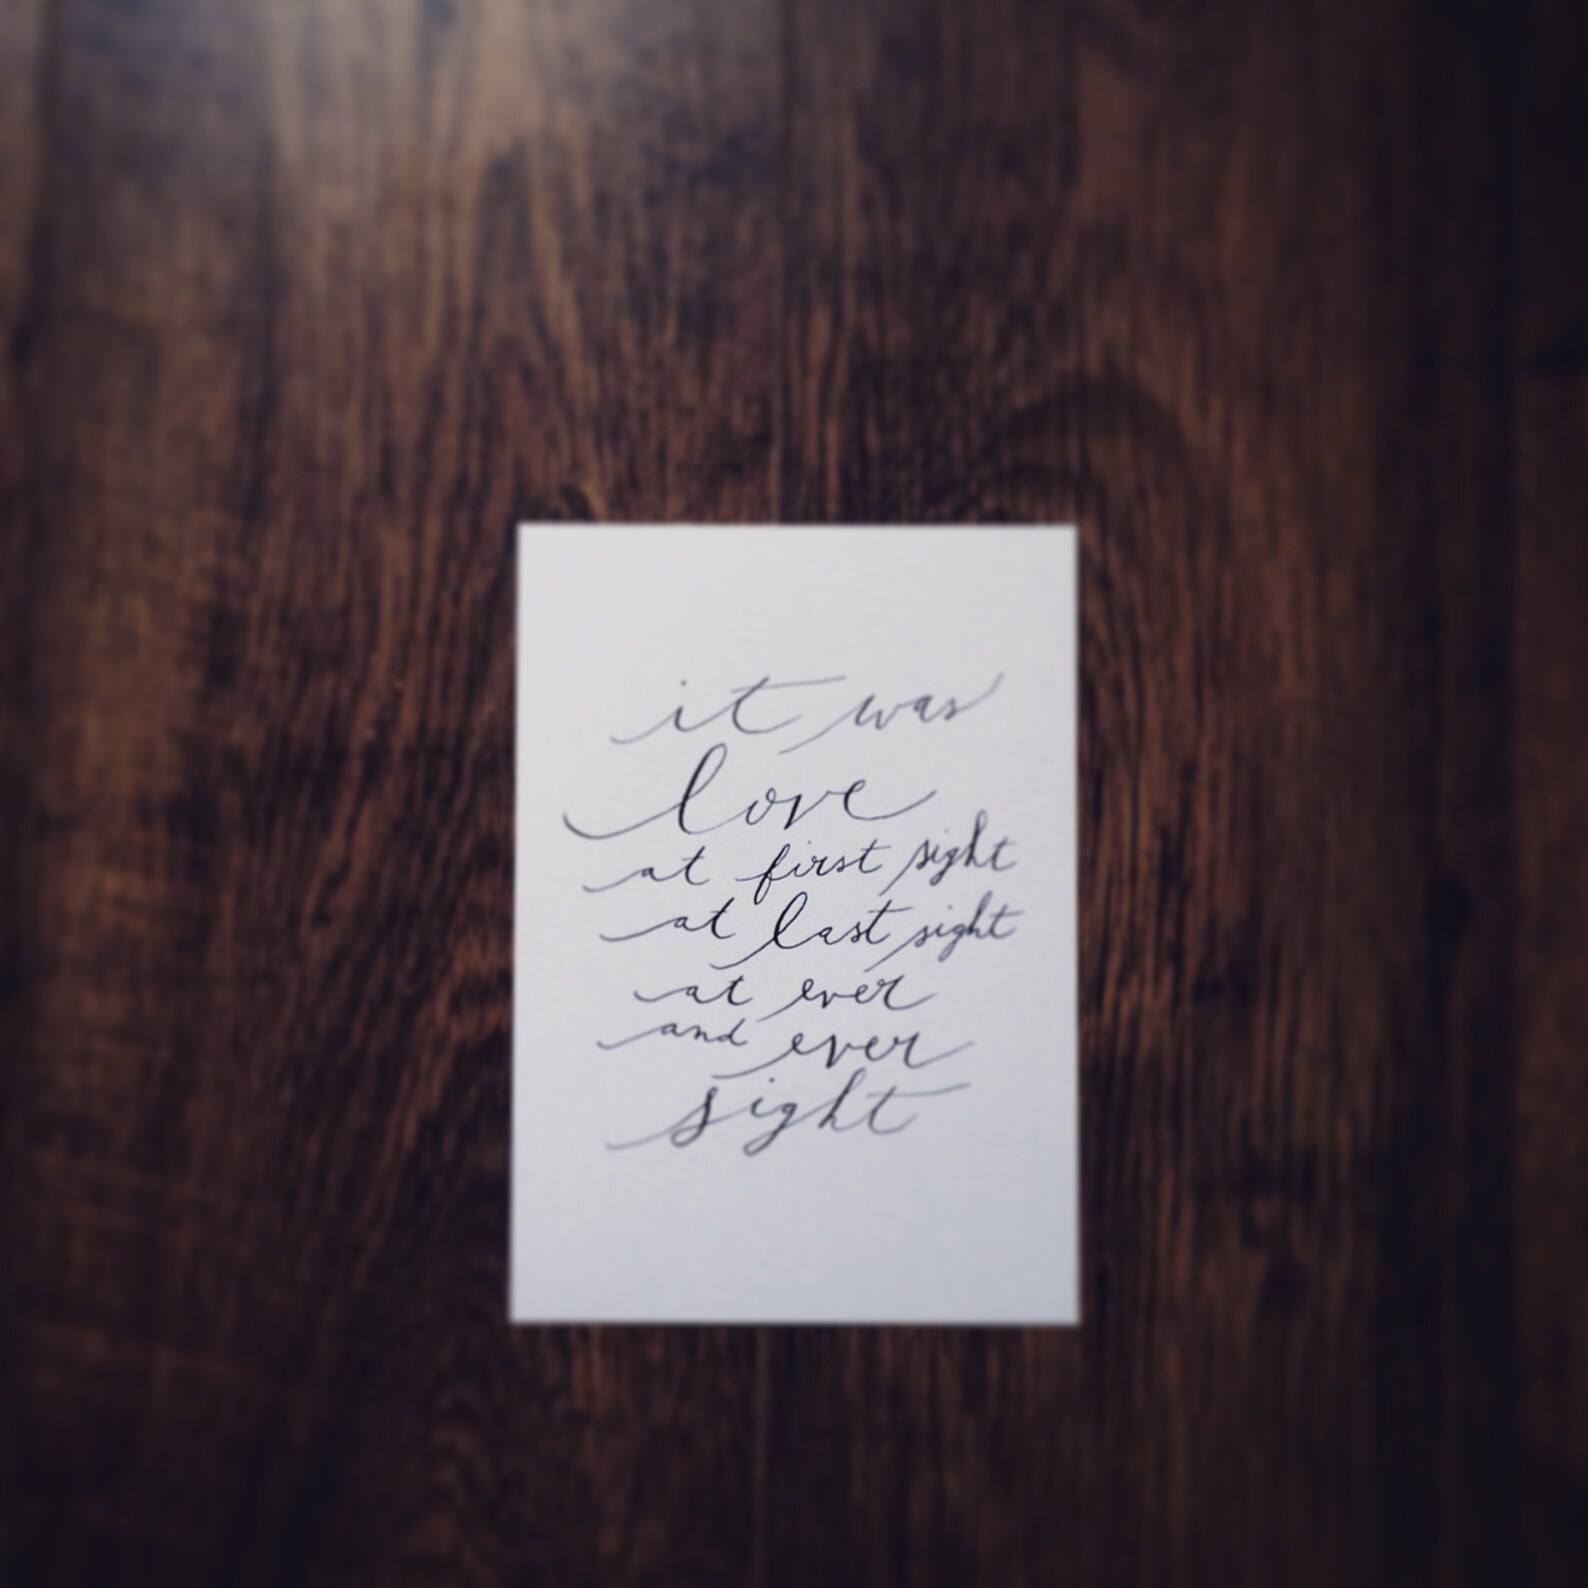 it was
love
at first sight
at last sight
at ever
and ever
sight